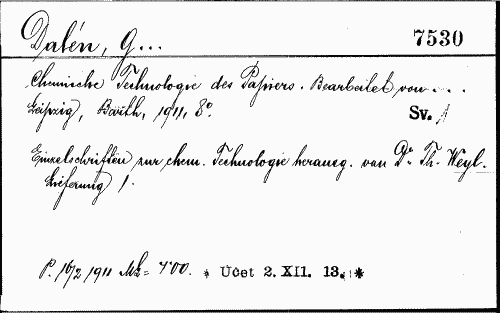 Dalén, G...
7530
Chemische Technologie des Papiers. Bearbeitet von...
Leipzig, Barth, 1911, 8°.
Sv. 1
Einzelschriften zur chem. Technologie herausg. von Dr. Th. Weyl.
Lieferung 1.
P. 16/2 1911 Mk= 4'00. * Účet 2. XII. 13. *